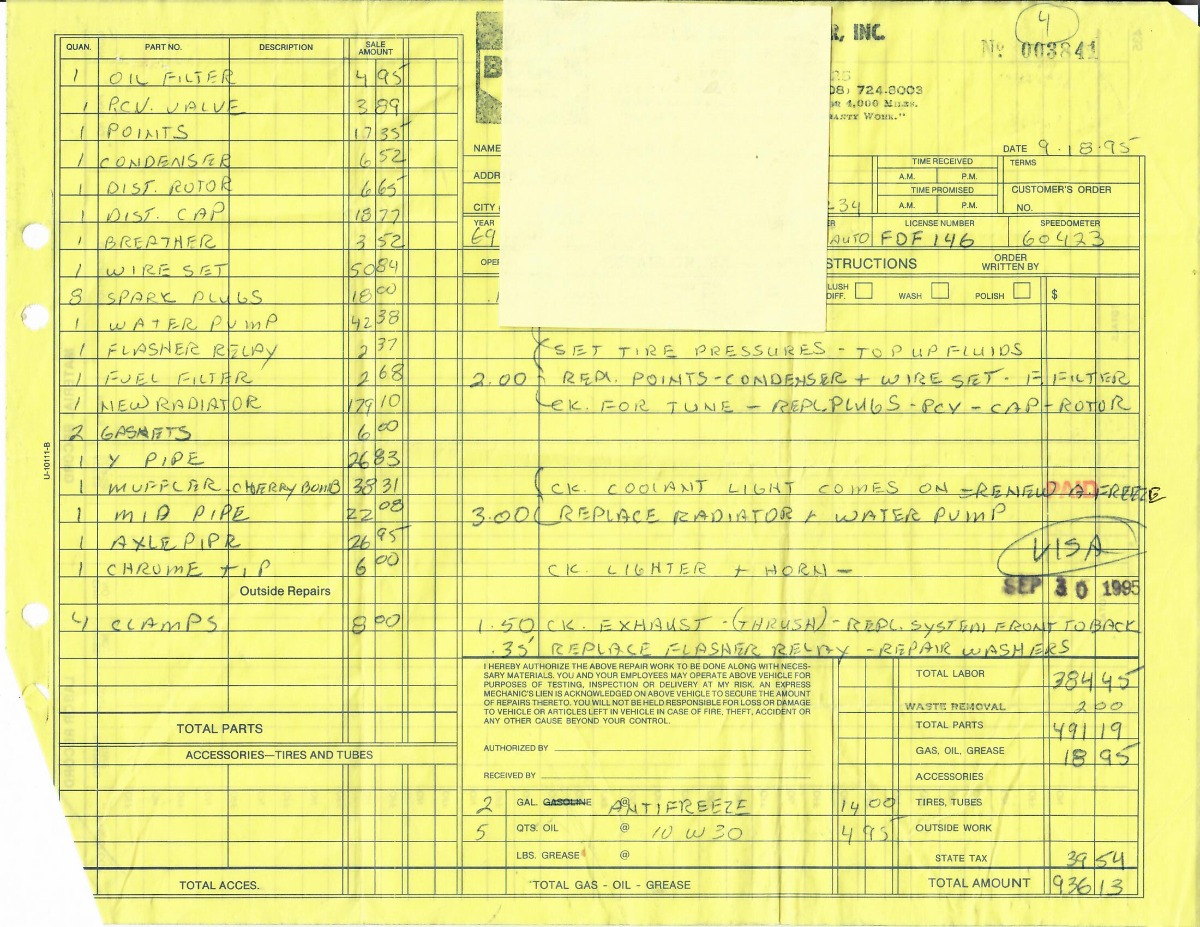 4
R, INC.
No 003841
08) 724-8003
OR 4,000 MILES.
ANTY WORK."
DATE 9.18.95
NAME
ADDR
CITY
234
TIME RECEIVED
A.M. P.M.
TIME PROMISED
A.M. P.M.
TERMS
CUSTOMER'S ORDER
NO.
YEAR
69
AUTO
LICENSE NUMBER
FDF 146
SPEEDOMETER
60423
OPE
STRUCTIONS
ORDER
WRITTEN BY
LUSH
DIFF.
WASH
POLISH
$
QUAN. PART NO. DESCRIPTION SALE AMOUNT
1 OIL FILTER 4 95
1 P.C.V. VALVE 3 89
1 POINTS 17 35
1 CONDENSER 6 52
1 DIST. ROTOR 6 65
1 DIST. CAP 18 77
1 BREATHER 3 52
1 WIRE SET 50 84
8 SPARK PLUGS 18 00
1 WATER PUMP 42 38
1 FLASHER RELAY 2 37
1 FUEL FILTER 2 68
1 NEW RADIATOR 179 10
2 GASKETS 6 00
1 Y PIPE 26 83
1 MUFFLER CHERRY BOMB 38 31
1 MID PIPE 22 08
1 AXLE PIPR 26 95
1 CHROME TIP 6 00
Outside Repairs
4 CLAMPS 8 00
TOTAL PARTS
ACCESSORIES—TIRES AND TUBES
TOTAL ACCES.
U-10111-B
SET TIRE PRESSURES - TOP UP FLUIDS
2.00 REPL. POINTS - CONDENSER + WIRE SET - F FILTER
CK. FOR TUNE - REPL. PLUGS - PCV - CAP - ROTOR
CK. COOLANT LIGHT COMES ON = RENEW A FREEZE
3.00 REPLACE RADIATOR + WATER PUMP
VISA
CK. LIGHTER + HORN -
SEP 30 1995
1.50 CK. EXHAUST - (THRUSH) - REPL. SYSTEM FRONT TO BACK
.35 REPLACE FLASHER RELAY - REPAIR WASHERS
I HEREBY AUTHORIZE THE ABOVE REPAIR WORK TO BE DONE ALONG WITH NECES-
SARY MATERIALS. YOU AND YOUR EMPLOYEES MAY OPERATE ABOVE VEHICLE FOR
PURPOSES OF TESTING, INSPECTION OR DELIVERY AT MY RISK. AN EXPRESS
MECHANIC'S LIEN IS ACKNOWLEDGED ON ABOVE VEHICLE TO SECURE THE AMOUNT
OF REPAIRS THERETO. YOU WILL NOT BE HELD RESPONSIBLE FOR LOSS OR DAMAGE
TO VEHICLE OR ARTICLES LEFT IN VEHICLE IN CASE OF FIRE, THEFT, ACCIDENT OR
ANY OTHER CAUSE BEYOND YOUR CONTROL.
AUTHORIZED BY
RECEIVED BY
2 GAL. GASOLINE @ ANTIFREEZE 14 00
5 QTS. OIL @ 10 W 30 4 95
LBS. GREASE @
TOTAL GAS - OIL - GREASE
TOTAL LABOR 384 45
WASTE REMOVAL 2 00
TOTAL PARTS 491 19
GAS, OIL, GREASE 18 95
ACCESSORIES
TIRES, TUBES
OUTSIDE WORK
STATE TAX 39 54
TOTAL AMOUNT 936 13